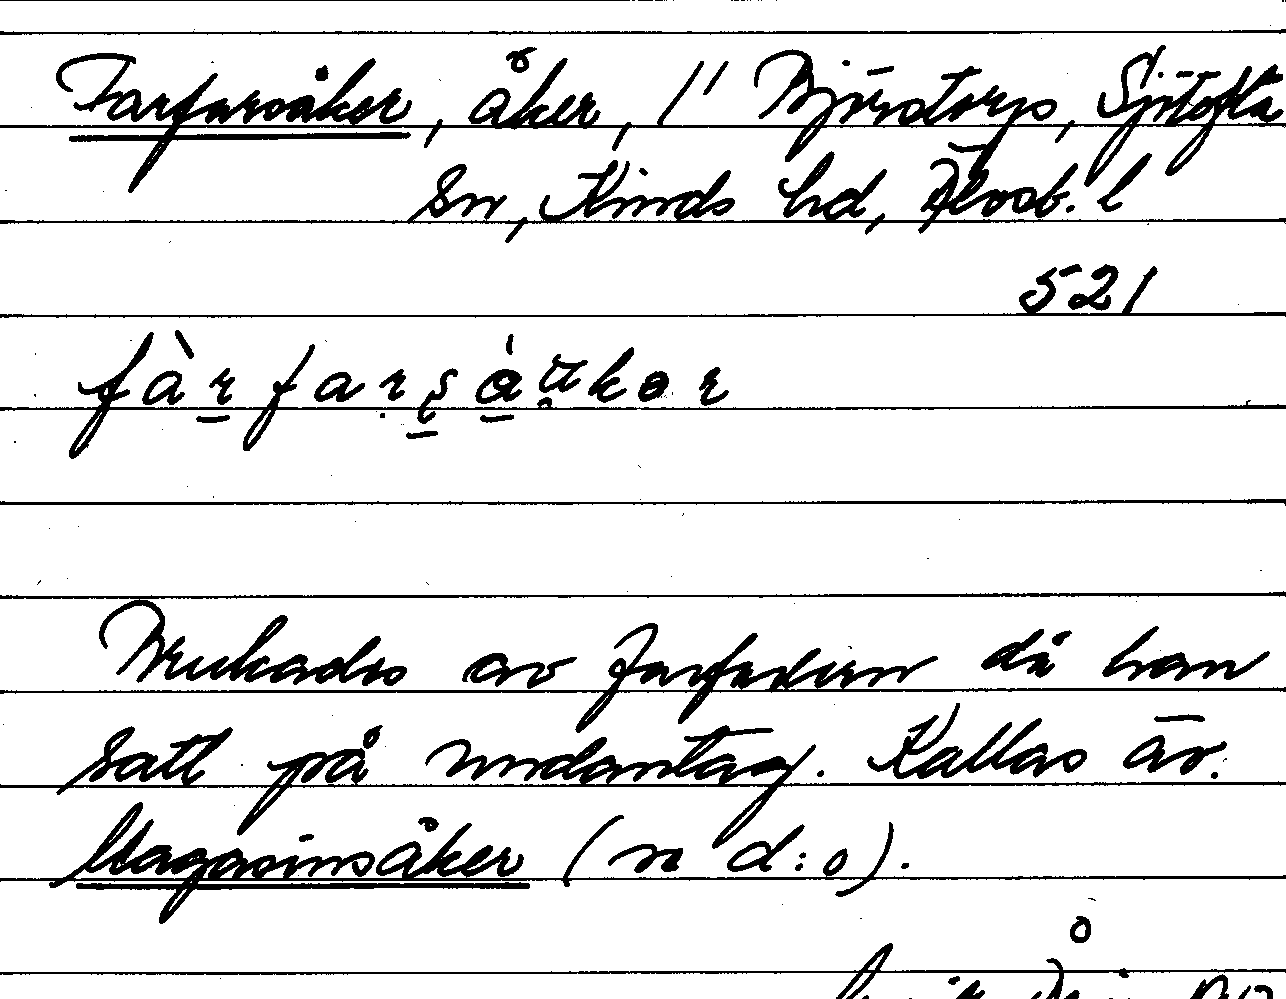 Farfarsåker, åker, 1" Bjärstorp, Sjötofta
Sn, Kinds hd, Älvsb. l
521
Brukades av farfadern då han
satt på undantag. Kallas äv.
Magasinsåker (se d:o).